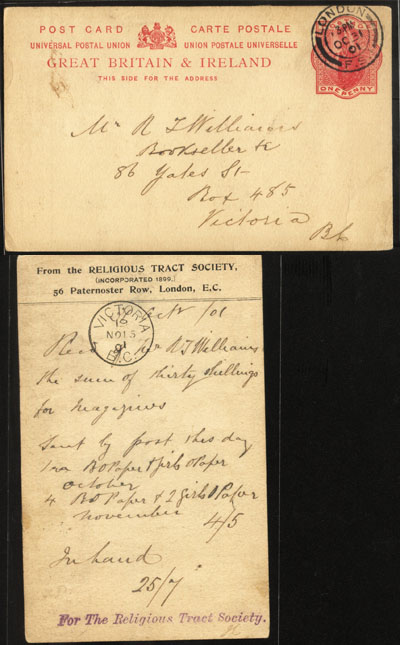 POST CARD CARTE POSTALE
UNIVERSAL POSTAL UNION UNION POSTALE UNIVERSELLE
GREAT BRITAIN & IRELAND
THIS SIDE FOR THE ADDRESS
LONDON
OC 31
01
F.S.
ONE PENNY
Mr R T Williams
Bookseller &c
86 Yates St
Box 485
Victoria
BC
From the RELIGIOUS TRACT SOCIETY,
(INCORPORATED 1899,)
56 Paternoster Row, London, E.C.
/01
VICTORIA
NO 15
01
B.C.
Mr R T Williams
the sum of thirty shillings
for Magazines
Sent by post this day
B O Paper & Girls O Paper
October
4 B O Paper & 2 Girls O Paper
November
4/5
In hand
25/7
For The Religious Tract Society.